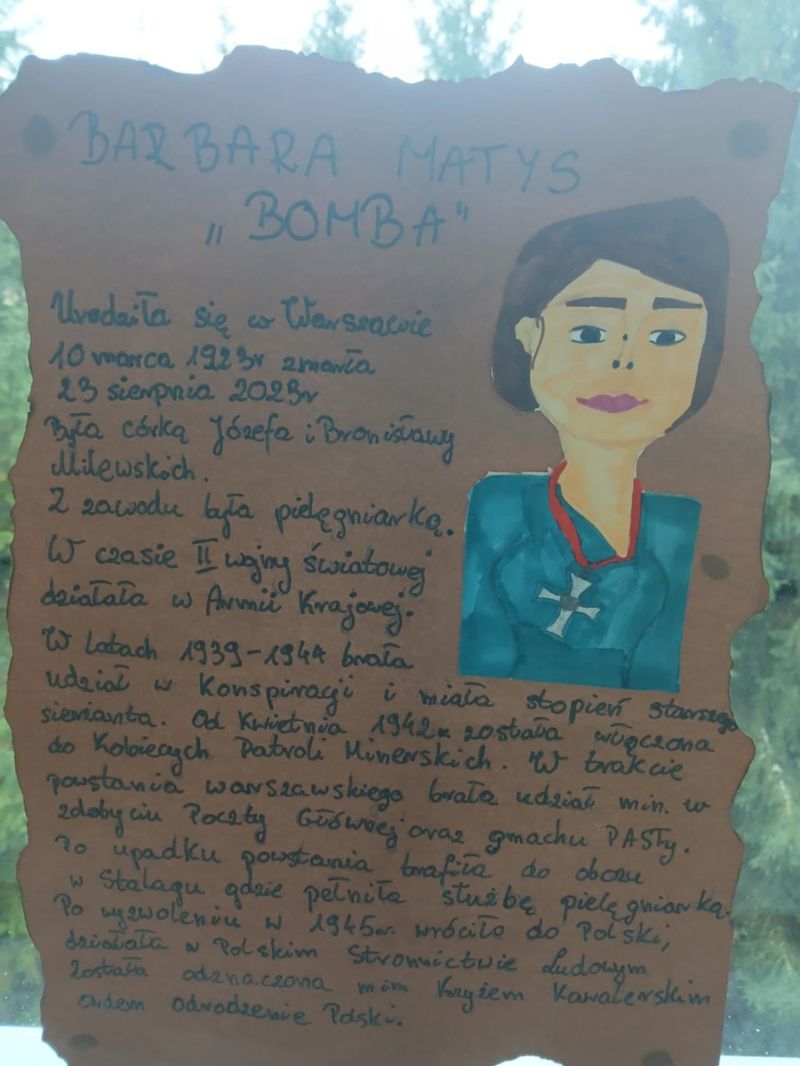 BARBARA MATYS
„BOMBA"
Urodziła się w Warszawie
10 marca 1923r zmarła
23 sierpnia 2023r
Była córką Józefa i Bronisławy
Milewskich.
Z zawodu była pielęgniarką.
W czasie II wojny światowej
działała w Armii Krajowej.
W latach 1939-1944 brała
udział w Konspiracji i miała stopień starszego
sierżanta. Od kwietnia 1942r została włączona
do Kobiecych Patroli Minerskich. W trakcie
powstania warszawskiego brała udział min. w
zdobyciu Poczty Głównej oraz gmachu PASTy.
Po upadku powstania trafiła do obozu
w Stalagu gdzie pełniła służbę pielęgniarką.
Po wyzwoleniu w 1945r. wróciła do Polski,
działała w Polskim Stronnictwie Ludowym
Została odznaczona min Krzyżem Kawalerskim
Ordem odrodzenie Polski.